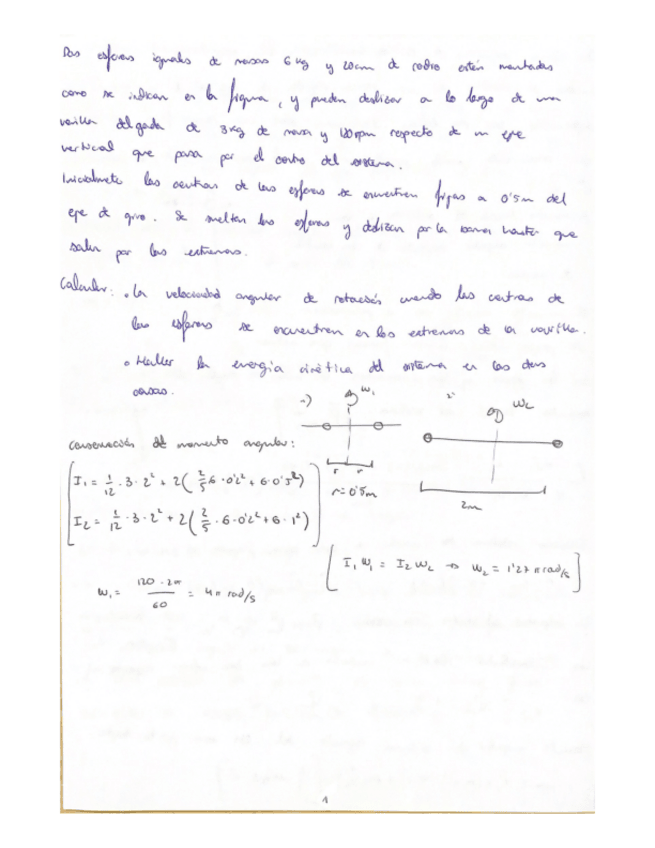 Dos esferas iguales de masas 6 kg y 20cm de radio están montadas
como se indican en la figura, y pueden deslizar a lo largo de una
varilla delgada de 3kg de masa y 120rpm respecto de un eje
vertical que pasa por el centro del sistema.
Inicialmente los centros de las esferas se encuentren fijas a 0'5m del
eje de giro. Se sueltan las esferas y deslizan por la barra hasta que
salen por los extremos.
Calcular: • la velocidad angular de rotación cuando los centros de
las esferas se encuentren en los extremos de la varilla.
• Hallar la energía cinética del sistema en los dos
casos.
1) W₁ 2) W₂
r r
r=0'5m
2m
Conservación del momento angular:
I₁ = 1/12 · 3 · 2² + 2(2/5 · 6 · 0'2² + 6 · 0'5²)
I₂ = 1/12 · 3 · 2² + 2(2/5 · 6 · 0'2² + 6 · 1²)
I₁ W₁ = I₂ W₂ → W₂ = 1'27 π rad/s
W₁ = 120 · 2π / 60 = 4π rad/s
1